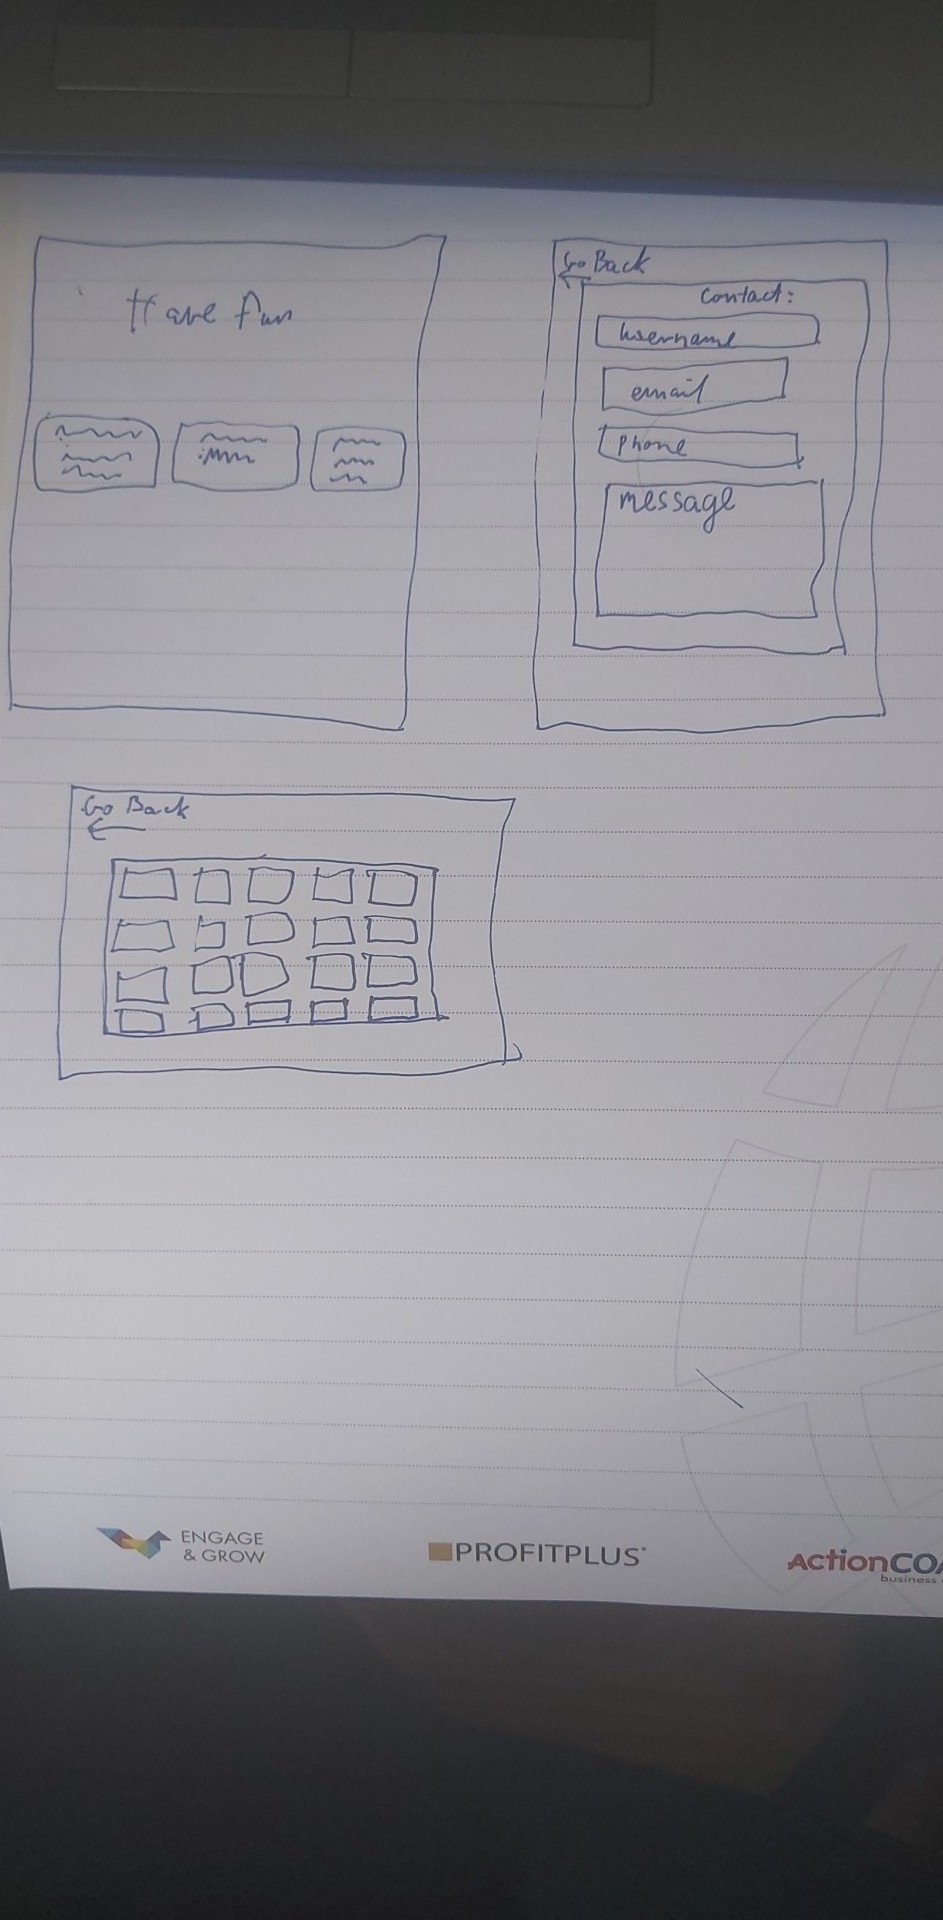 Have fun
Go Back
Contact:
username
email
phone
message
Go Back
ENGAGE
& GROW
PROFITPLUS
ActionCOA
business